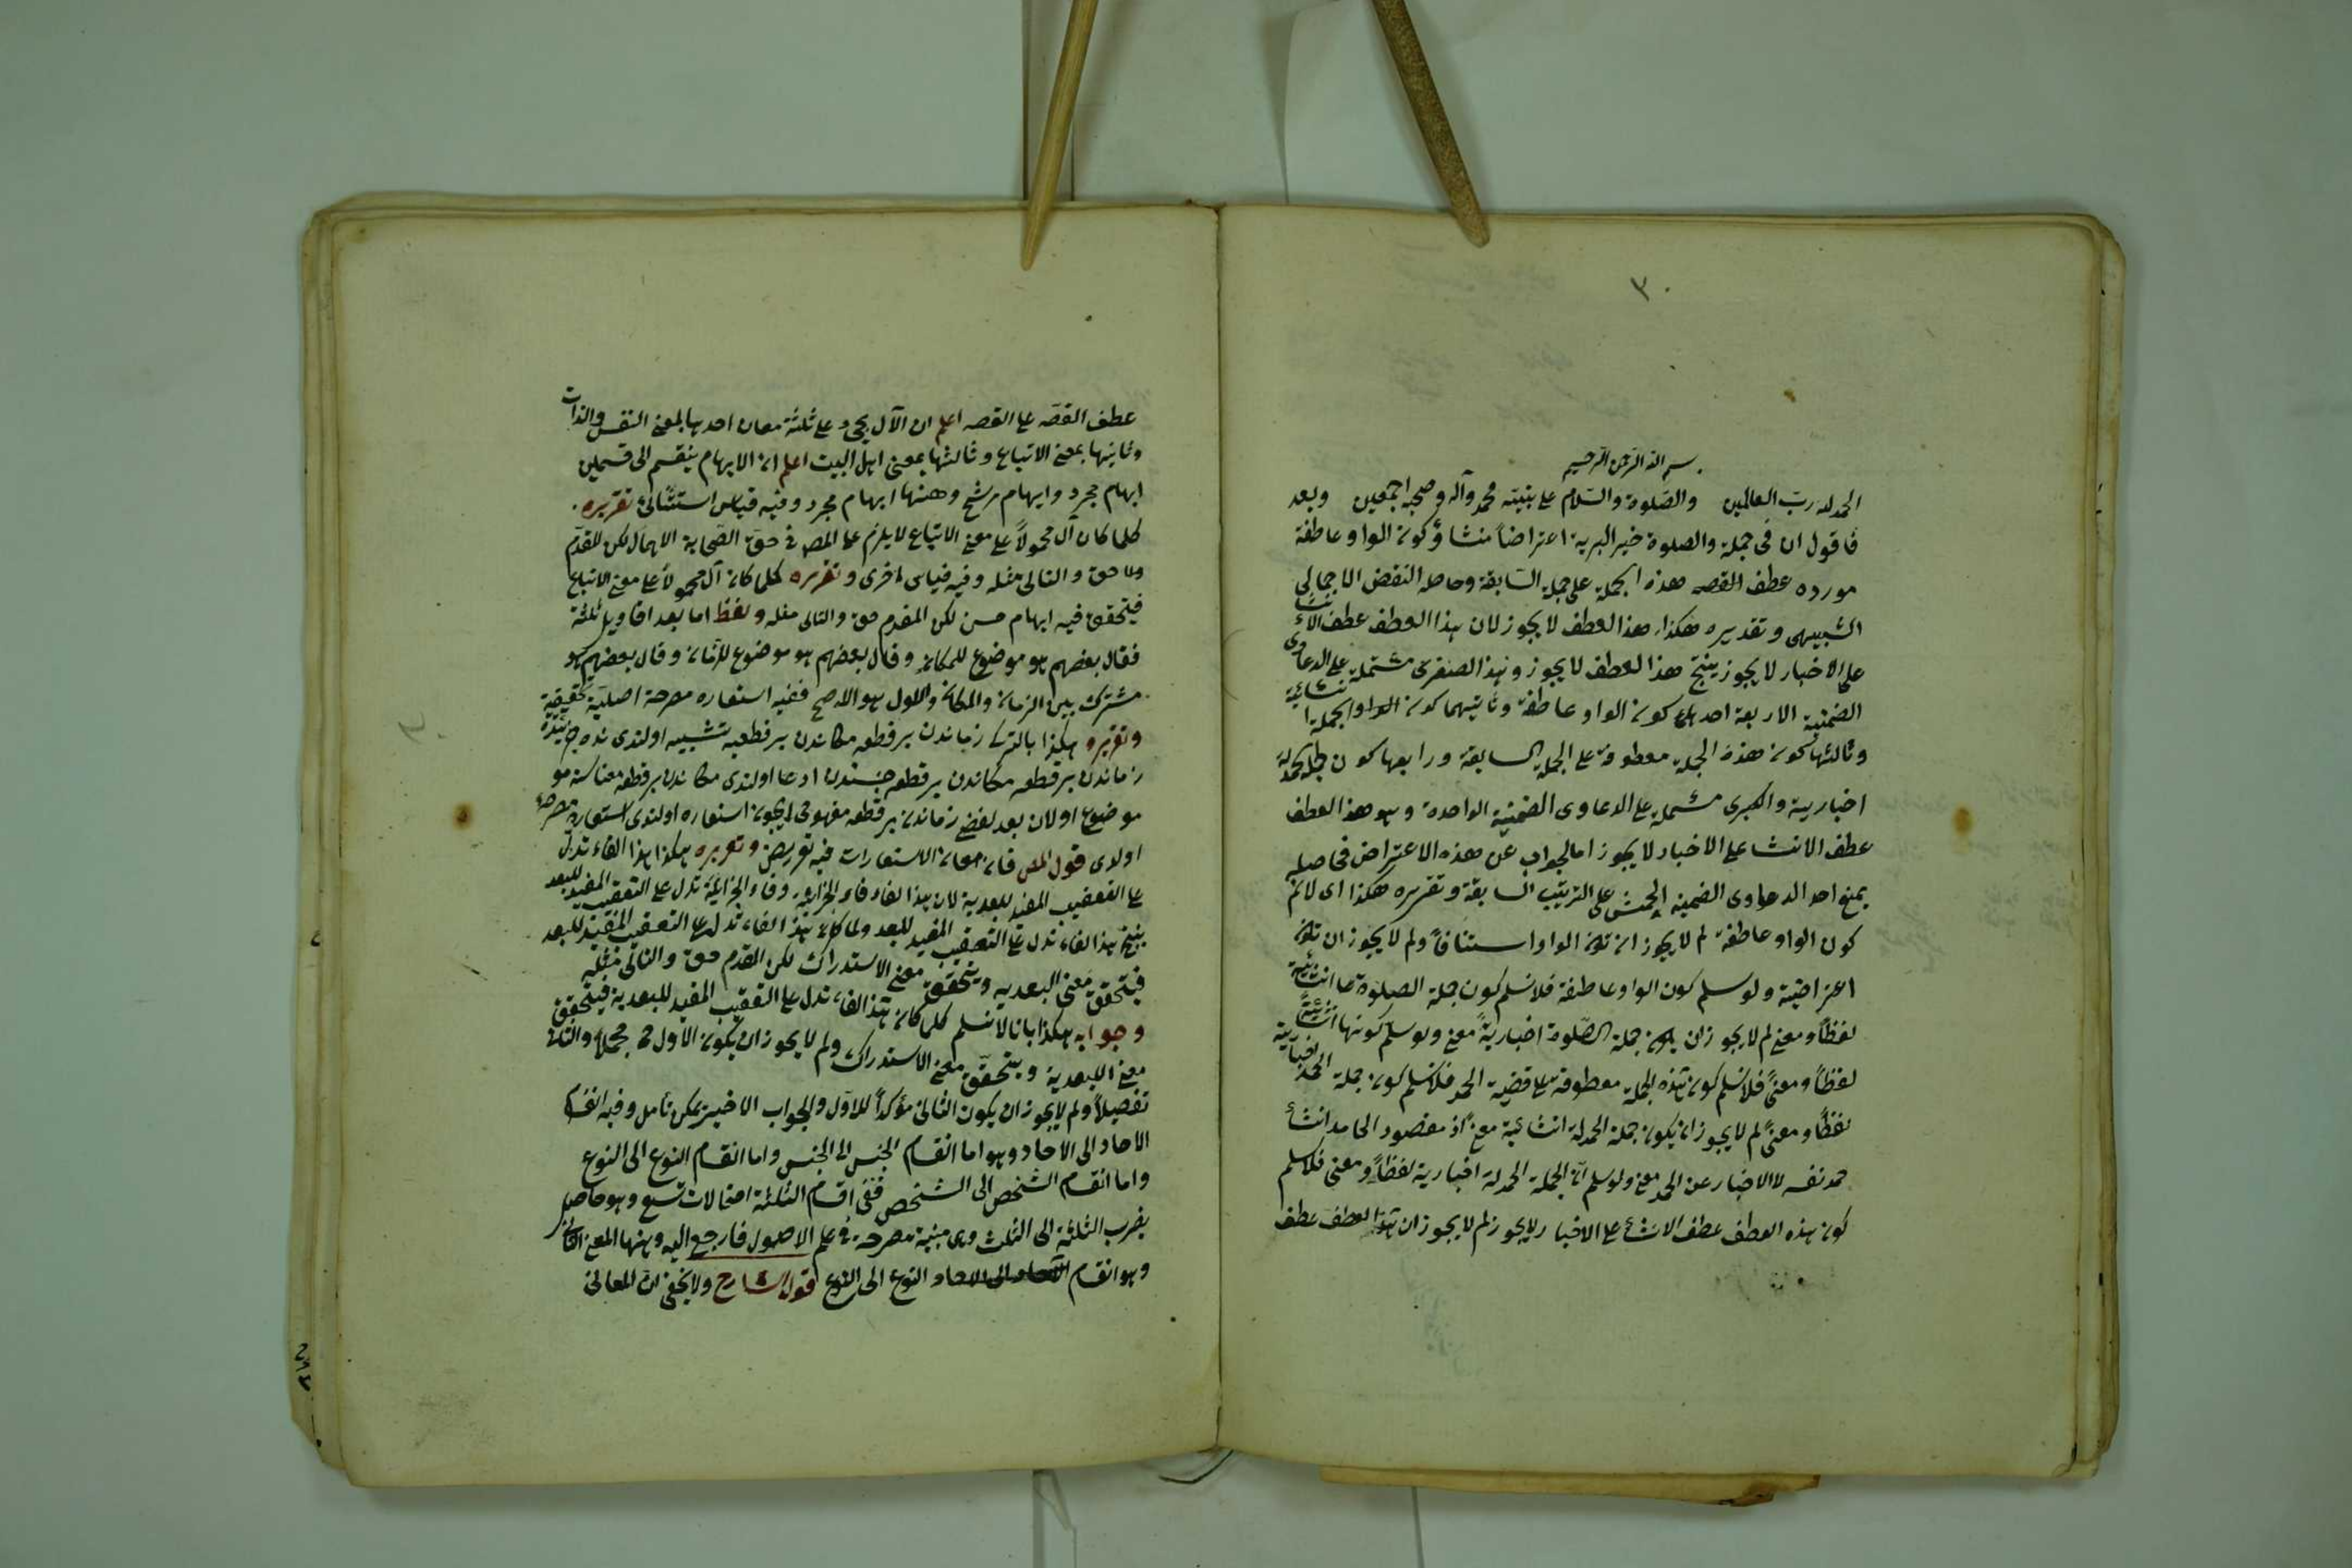 ٣٠
بسم الله الرحمن الرحيم
الحمد لله رب العالمين والصلوة والسلام على نبيه محمد وآله وصحبه اجمعين وبعد
فاقول ان فى جملة والصلوة خير البرية اعتراضاً منشاؤ كون الواو عاطفة
مورده عطف القصه هذه الجملة على جملة السابقة وحاصله النقض الاجمالى
الشبيهى وتقديره هكذا هذا العطف لا يجوز لان هذا العطف عطف الانشاء
على الاخبار لا يجوز ينتج هذا العطف لا يجوز وهذا الصغرى مشتملة على الدعاوى
الضمنية الاربعة احدها كون الواو عاطفة وثانيهما كون الواو الجملة انشائية
وثالثها كون هذه الجملة معطوفة على الجملة السابقة ورابعها كون جملة الحمدلة
اخبارية والكبرى مشملة على الدعاوى الضمنية الواحدة وهو هذا العطف
عطف الانشا على الاخبار لا يجوز اما لجواب عن هذه الاعتراض فحاصله
بمنع احد الدعاوى الضمنية الخمس على الترتيب السابقة وتقريره هكذا اى لا نم
كون الواو عاطفة لم لا يجوز ان تكون الواو استنافاً ولم لا يجوز ان تكون
اعتراضية ولو سلم كون الواو عاطفة فلا نسلم كون جملة الصلوة انشائية
لفظاً ومعنى لم لا يجوز ان يكون جملة الصلوة اخبارية معنى ولو سلم كونها انشائية
لفظاً ومعنى فلا نسلم كون هذه الجملة معطوفة على قضية الحمد فلا نسلم كون جملة الحمد اخبارية
لفظاً ومعنى لم لا يجوز ان يكون جملة الحمدلة انشائية معنى اذ مقصود الحامد انشاء
حمد نفسه لا الاخبار عن الحمد معنى ولو سلم ان الجملة الحمدلة اخبارية لفظاً ومعنى فلا نسلم
كون هذه العطف عطف الانشاء على الاخبار لا يجوز لم لا يجوز ان هذا العطف عطف
عطف القصه على القصه اعلم ان الآل يجئ على ثلثة معان احدها بمعنى النفس والذات
وثانيها بمعنى الاتباع وثالثها بمعنى اهل البيت اعلم ان الايهام ينقسم الى قسمين
ايهام مجرد وايهام مرشح وههنا ايهام مجرد وفيه قياس استثنائى تقريره
كلما كان آل محمولاً على معنى الاتباع لا يلزم على المص فى حق الصحابة الاهمال لكن المقدم
حق والتالى مثله وفيه قياس اخرى وتقريره كلما كان آل محمولا على معنى الاتباع
فيتحقق فيه ايهام حسن لكن المقدم حق والتالى مثله ولفظ اما بعد اقاويل ثلثة
فقال بعضهم هو موضوع للمكان وقال بعضهم هو موضوع للزمان وقال بعضهم هو
مشترك بين الزمان والمكان والاول هو الاصح ففيه استعاره مصرحة اصلية تحقيقية
وتقريره هكذا بالترك زماندن بر قطعه مكاندن بر قطعيه تشبيه اولندى
زماندن بر قطعه مكاندن بر قطعه جنسندن ادعا اولندى مكاندن بر قطعه معناسنه مو
موضوع اولان بعد لفظى زماندن بر قطعه مفهومى ايچون استعاره اولندى استعاره مصرحه
اولدى قول المص فان معان الاستعارات فيه تعريض وتقريره هكذا هذا الفاء تدل
على التعقيب المفيد للبعدية لان هذا الفاء فاء الجزائية وفاء الجزائية تدل على التعقيب المفيد للبعد
ينتج هذا الفاء تدل على التعقيب المفيد للبعد ولما كان هذا الفاء تدل على التعقيب المفيد للبعد
فيتحقق معنى البعدية ويتحقق معنى الاستدراك لكن المقدم حق والتالى مثله
وجوابه هكذا بانا لا نسلم كلما كان هذا الفاء تدل على التعقيب المفيد للبعدية فيتحقق
معنى البعدية ويتحقق معنى الاستدراك ولم لا يجوز ان يكون الاول مجملا والثانى
تفصيلاً ولم لا يجوز ان يكون الثانى مؤكداً للاول والجواب الاخير يمكن تامل وفيه انقسام
الاحاد الى الاحاد وهو اما انقسام الجنس الى الجنس واما انقسام النوع الى النوع
واما انقسام الشخص الى الشخص ففى اقسام الثلثة احتمالات تسع وهو حاصل
بضرب الثلثة الى الثلث وهى مبنية مصرحة فى علم الاصول فارجع اليه وههنا المعنى الثانى
وهو انقسام النوع الى النوع قول الشارح ولا يخفى ان المعانى